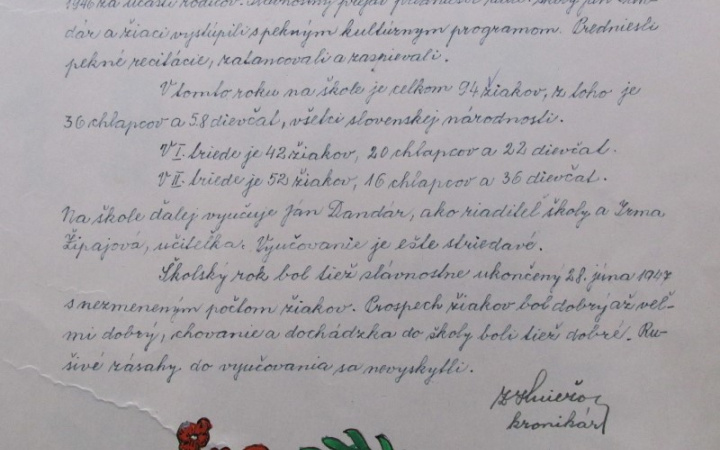 1946 za účasti rodičov.
dár a žiaci vystúpili s pekným kultúrnym programom. Predniesli
pekné recitácie, zatancovali a zaspievali.
V tomto roku na škole je celkom 94 žiakov, z toho je
36 chlapcov a 58 dievčat, všetci slovenskej národnosti.
V I. triede je 42 žiakov, 20 chlapcov a 22 dievčat.
V II. triede je 52 žiakov, 16 chlapcov a 36 dievčat.
Na škole ďalej vyučuje Ján Dandár, ako riaditeľ školy a Irma
Žipajová, učiteľka. Vyučovanie je ešte striedavé.
Školský rok bol tiež slávnostne ukončený 28. júna 1947
s nezmeneným počtom žiakov. Prospech žiakov bol dobrý až veľ-
mi dobrý, chovanie a dochádzka do školy boli tiež dobré. Ru-
šivé zásahy do vyučovania sa nevyskytli.
kronikár